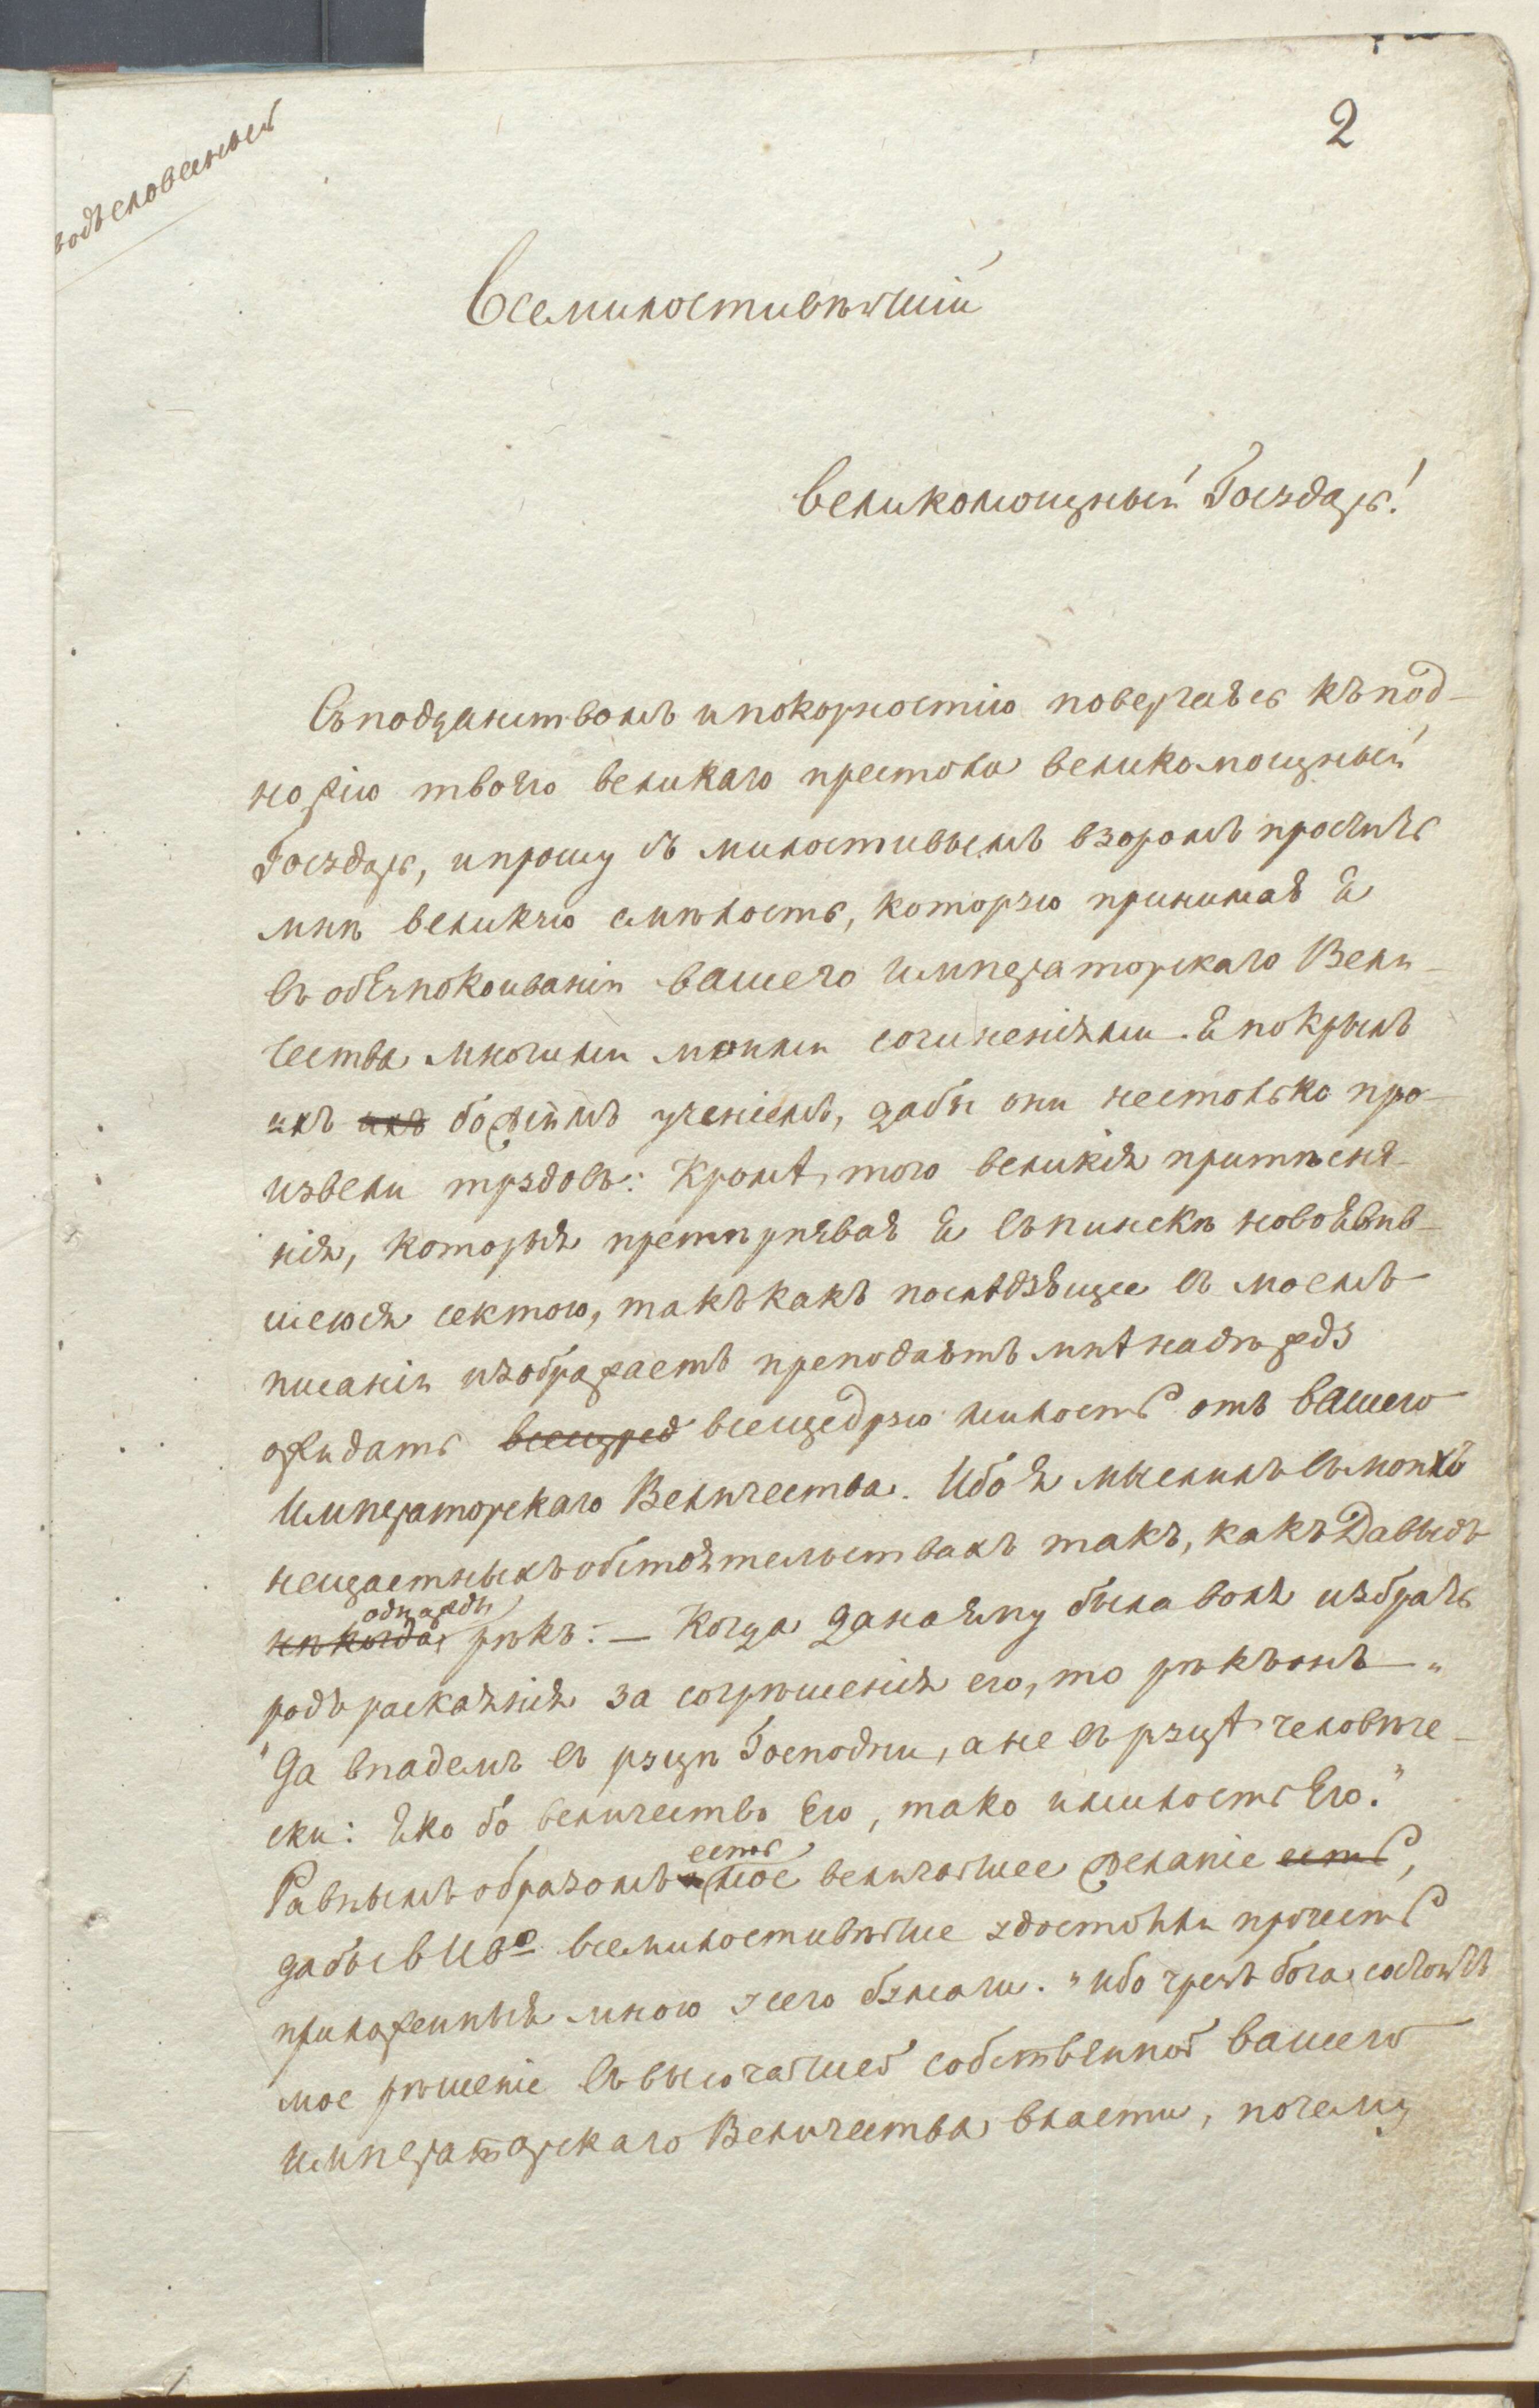 2
водъ словесный
Всемилостивѣйшій
Великомощный Государь!
Съ подданствомъ и покорностію повергаюсь къ под-
ножію твоего великаго престола великомощный
Государь, и прошу съ милостивымъ взоромъ простить
мнѣ великую смѣлость, которую принимаю я
въ обезпокоиваніи вашего Императорскаго Вели-
чества многими моими сочиненіями. Я покрылъ
ихъ ихъ божіимъ ученіемъ, дабы они нестолько про-
извели трудовъ: Кромѣ того великія притѣсне-
нія, которыя претѣрпѣваю я въ пинскѣ новоявив-
шеюся сектою, такъ какъ послѣдующее въ моемъ
писаніи изображаетъ преподаетъ мнѣ надѣжду
ожидать всещред всещедрую милость отъ вашего
Императорскаго Величества. Ибо я мыслилъ въ моихъ
нещастныхъ обстоятельствахъ такъ, какъ Давыдъ
однажды
нѣкогда рѣкъ: — Когда дана ему была воля избрать
родъ раскаянія за согрѣшенія его, то рѣкъ онъ „
"Да впадемъ въ руцѣ Господни, а не въ руцѣ человѣче-
ски: Яко бо величество Его, тако и милость Его."
есть
Равнымъ образомъ и мое величайшее желаніе есть,
дабы В И В⁰ всемилостивѣйше удостоили прочесть
приложенныя мною у сего бумаги. „ибо чрезъ бога состоитъ
мое рѣшеніе въ высочайшей собственной вашего
Императорскаго Величества власти, почему